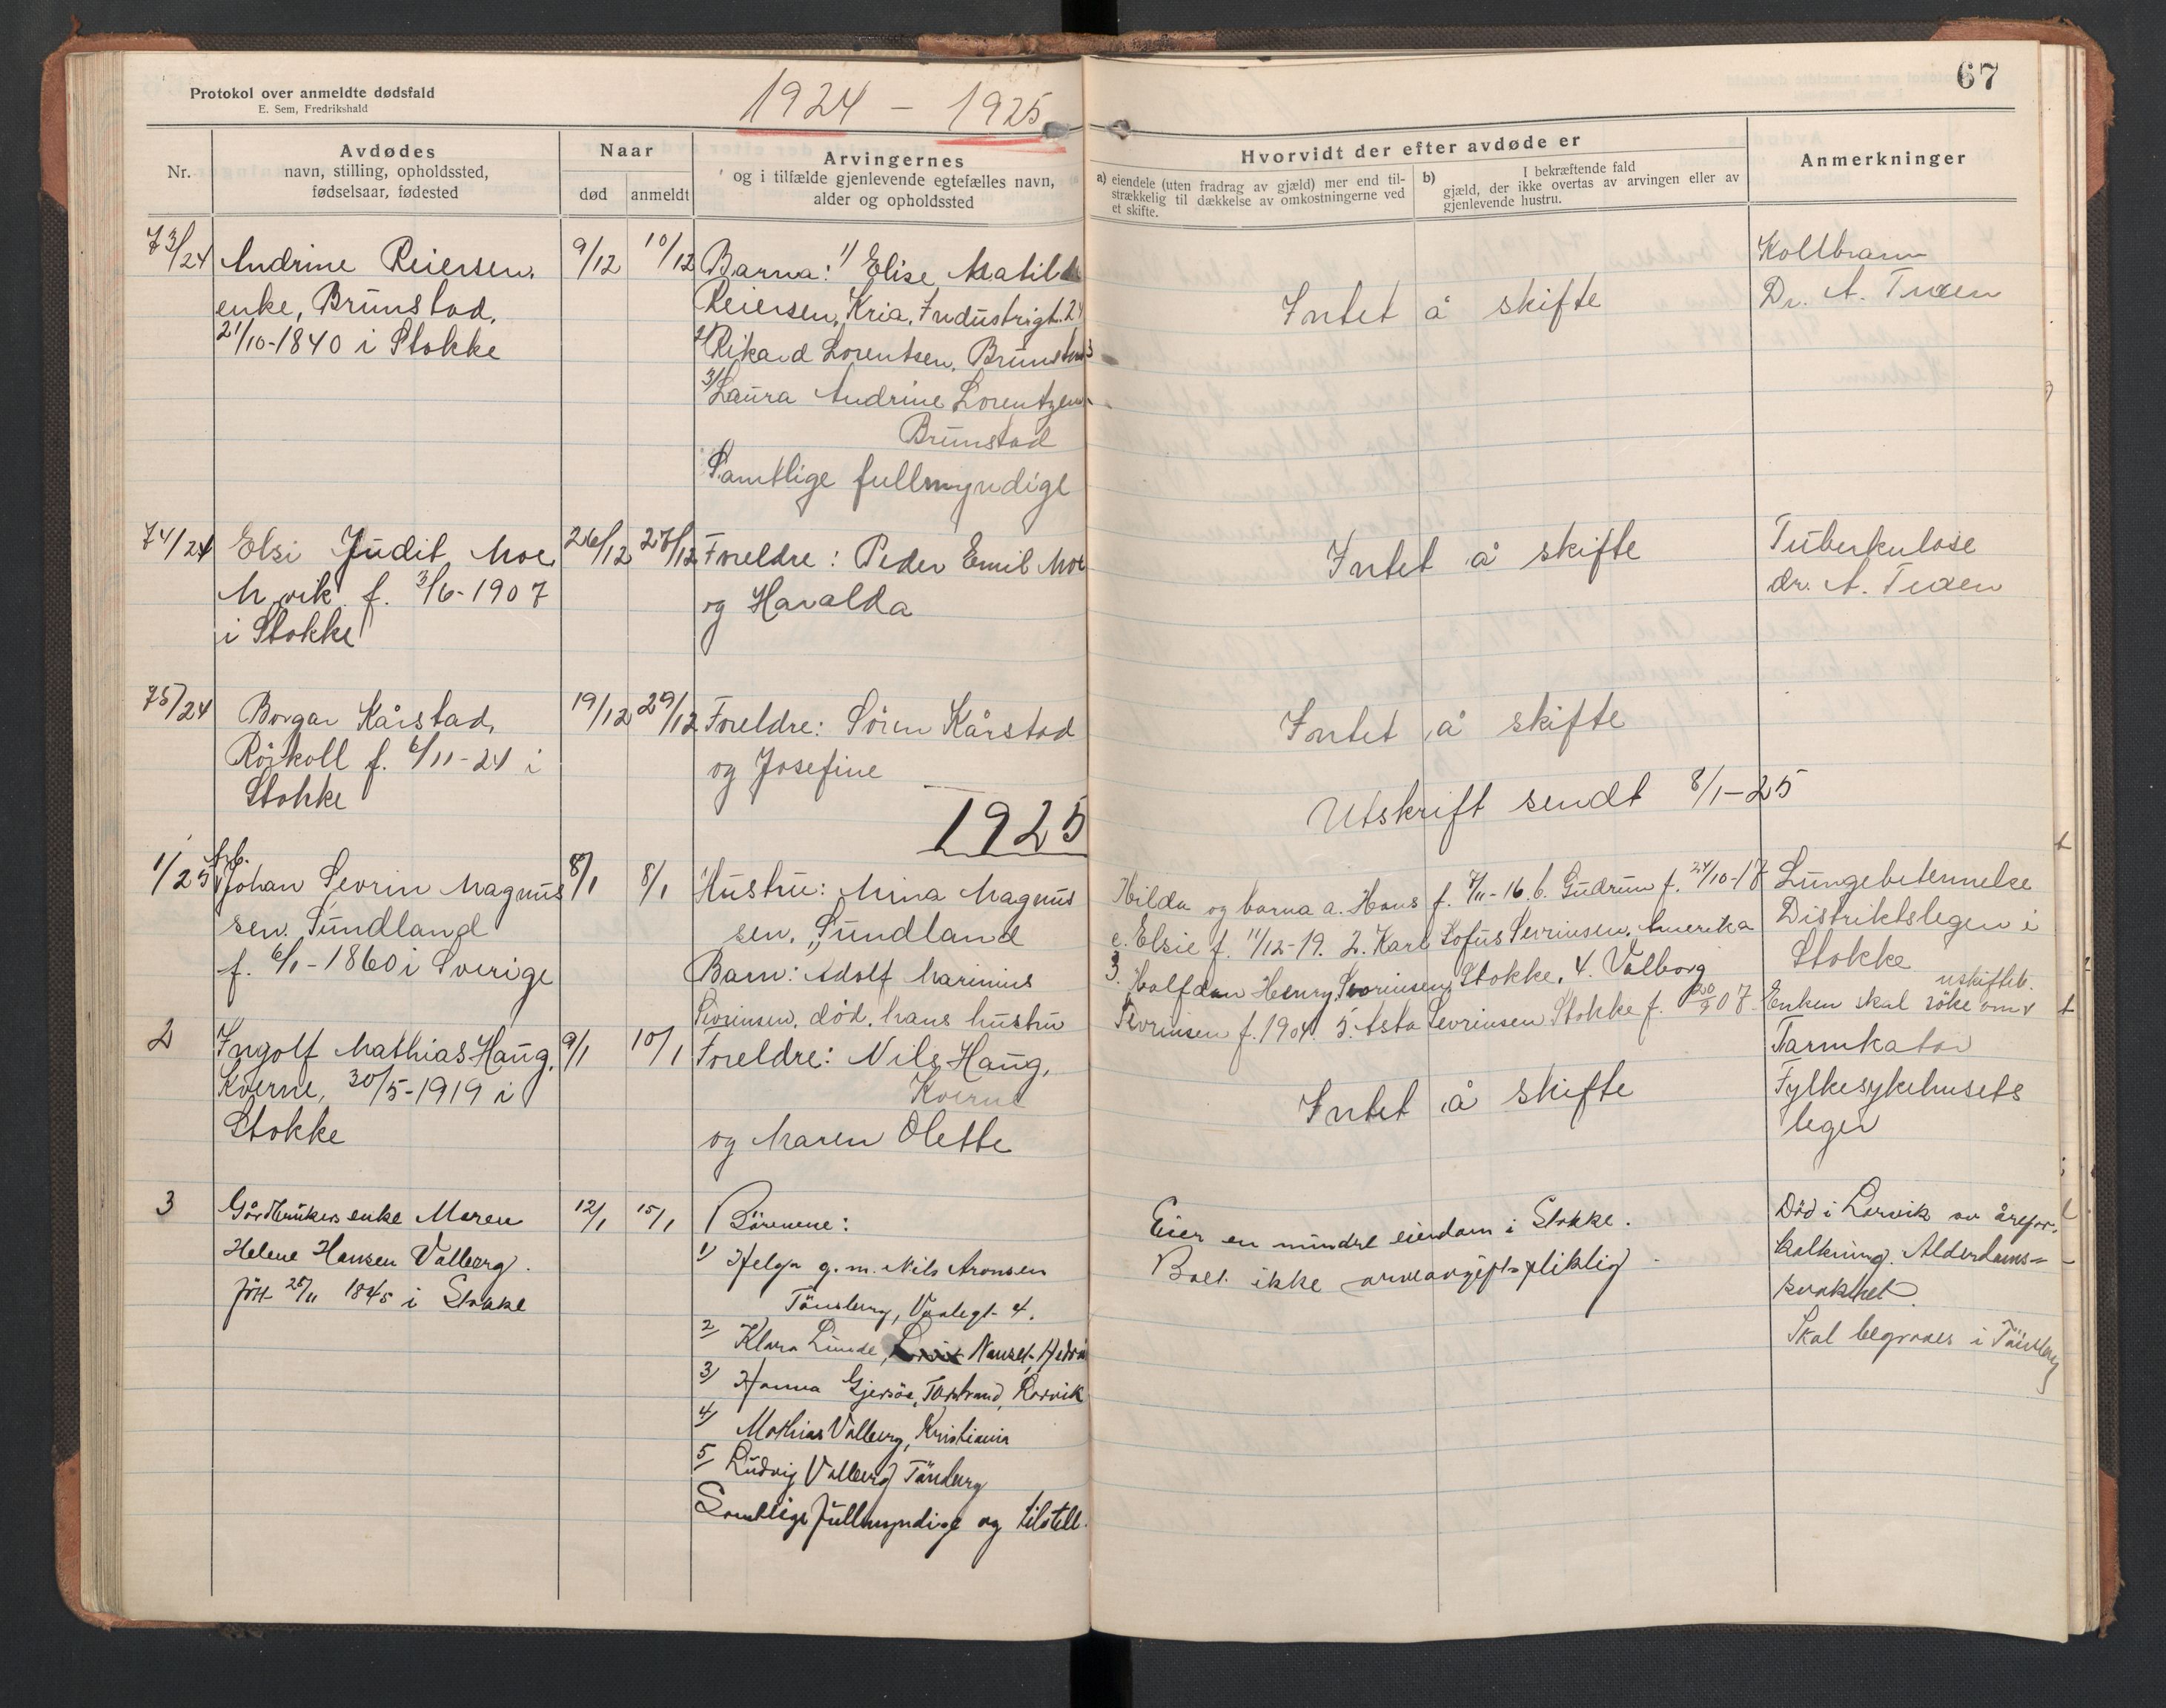 Protokol over anmeldte dødsfald
E. Sem, Fredrikshald
1924 - 1925
67
Nr.
Avdødes
navn, stilling, opholdssted,
fødselsaar, fødested
Naar
død
anmeldt
Arvingernes
og i tilfælde gjenlevende egtefælles navn,
alder og opholdssted
Hvorvidt der efter avdøde er
a) eiendele (uten fradrag av gjæld) mer end til-
strækkelig til dækkelse av omkostningerne ved
et skifte.
b) I bekræftende fald
gjæld, der ikke overtas av arvingen eller av
gjenlevende hustru.
Anmerkninger
73/24
Andrine Reiersen,
enke, Brunstad,
21/10-1840 i Stokke
9/12
10/12
Barna: 1/ Elise Matilde
Reiersen, Kria, Industrigt. 24
2/ Rikard Lorentsen, Brunstad
3/ Laura Andrine Lorentzen
Brunstad
Samtlige fullmyndige
Intet å skifte
Koldbrann
Dr. A. Tveen
74/24
Elsi Judit Moe
M vik f. 3/6-1907
i Stokke
26/12
27/12
Foreldre: Peder Emil Moe
og Haralda
Intet å skifte
Tuberkulose
dr. A. Tveen
75/24
Borgar Kårstad,
Röskoll f. 6/11-24 i
Stokke
19/12
29/12
Foreldre: Sören Kårstad
og Josefine
Intet å skifte
Utskrift sendt 8/1-25
1925
1/25
Arb.
Johan Sevrin Magnus
sen. Sundland
f. 6/1-1860 i Sverige
8/1
8/1
Hustru: Mina Magnus
sen, Sundland
Barn: Adolf Marinius
Sevrinsen, död, hans hustru
Hilda og barna a. Hans f. 7/11-16. b. Gudrun f. 24/10-17
c. Elsie f. 11/12-19. 2. Karl Sofus Sevrinsen, Amerika
3. Halfdan Henry Sevrinsen, Stokke, 4. Valborg
Sevrinsen f. 1904. 5. Asta Sevrinsen Stokke f. 20/9 07
Lungebetennelse
Distriktslegen i
Stokke
uskiftet.
Enken skal söke om
2
Ingolf Mathias Haug,
Kverne, 30/5-1919 i
Stokke
9/1
10/1
Foreldre: Nils Haug,
Kverne
og Maren Olette
Intet å skifte
Tarmkatar
Fylkesykehusets
leger
3
Gårdbrukers enke Maren
Helene Hansen Valberg.
född 25/11 1845 i Stokke
12/1
15/1
Börnene:
1) Helga g.m. Nils Aronsen
Tönsberg, gt. 4.
2/ Klara Linde, Nanset, Hedr
3) Hanna Gjersöe, Torstrand, Larvik
4) Mathias Valberg, Kristiania
5/ Ludvig Valberg Tönsberg
Samtlige fullmyndige og tilstell.
Eier en mindre eiendom i Stokke.
Boet ikke arveavgiftspliktig
Död i Larvik av årefor-
kalkning. Alderdoms-
svakhet.
Skal begraves i Tönsberg